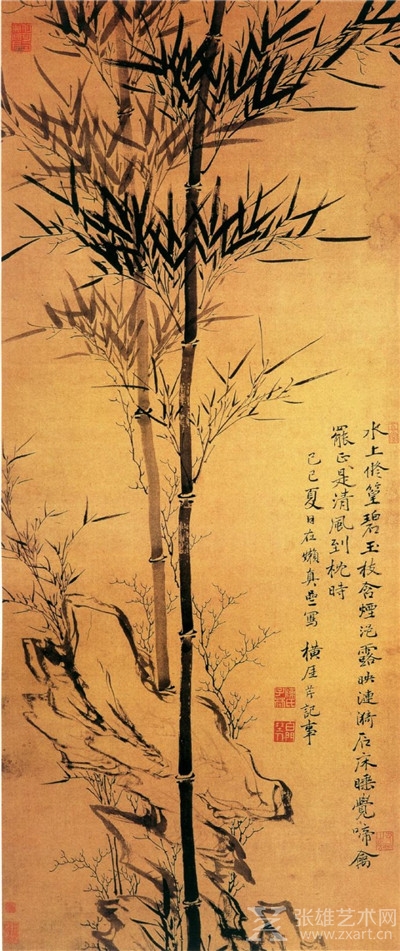 水上脩篁碧玉枝含煙浥露映漣漪石床睡覺啼禽
罷正是清風到枕時
己巳夏日在嬾真寫 橫厓芹記事
张雄艺术网
www.zxart.cn